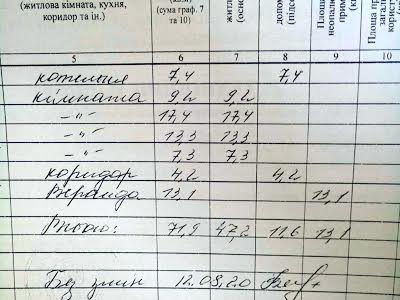 (житлова кімната, кухня, коридор та ін.)
(сума граф. 7 та 10)
житл
(осно
допом
(підсо
Площа
неопали
прим
(к
Площа пр
загал
корист
(
5 6 7 8 9 10
котельня 7,4 7,4
кімната 9,2 9,2
–"– 17,4 17,4
–"– 13,3 13,3
–"– 7,3 7,3
коридор 4,2 4,2
Веранда 13,1 13,1
Всього: 71,9 47,2 11,6 13,1
Без змін 12.08.20